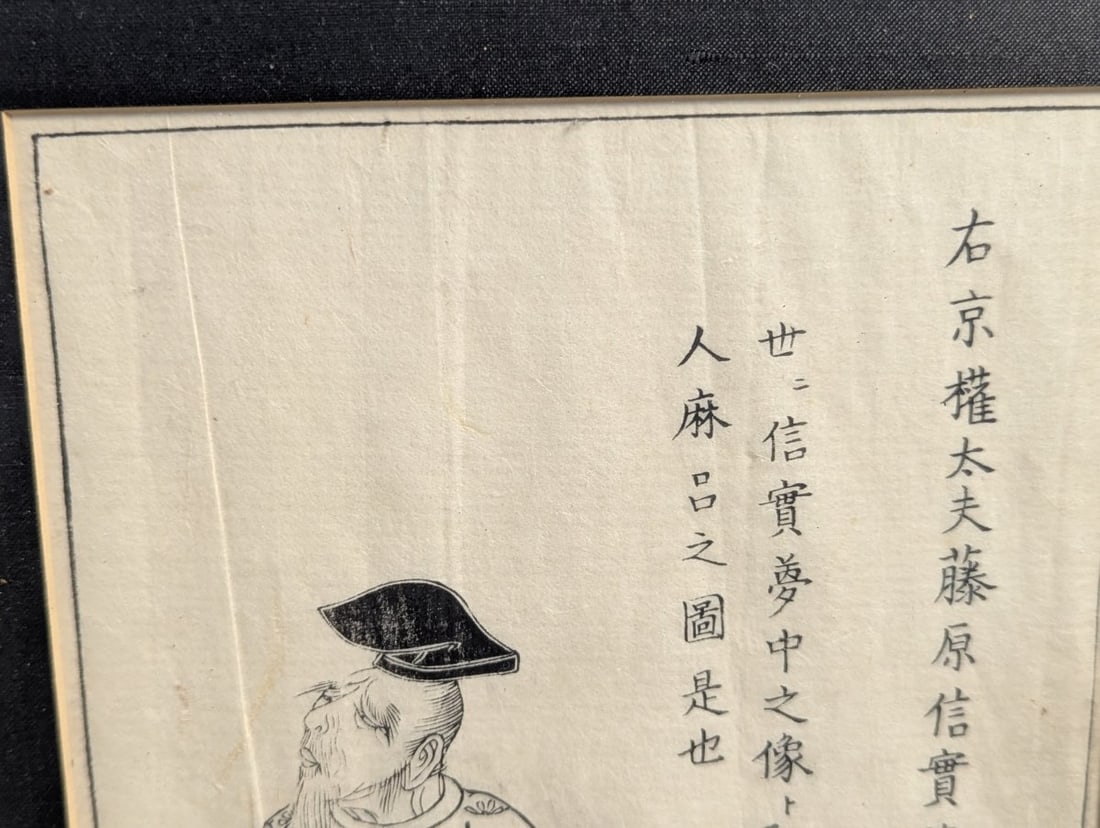 右京權太夫藤原信實
世ニ信實夢中之像ト
人麻呂之圖是也